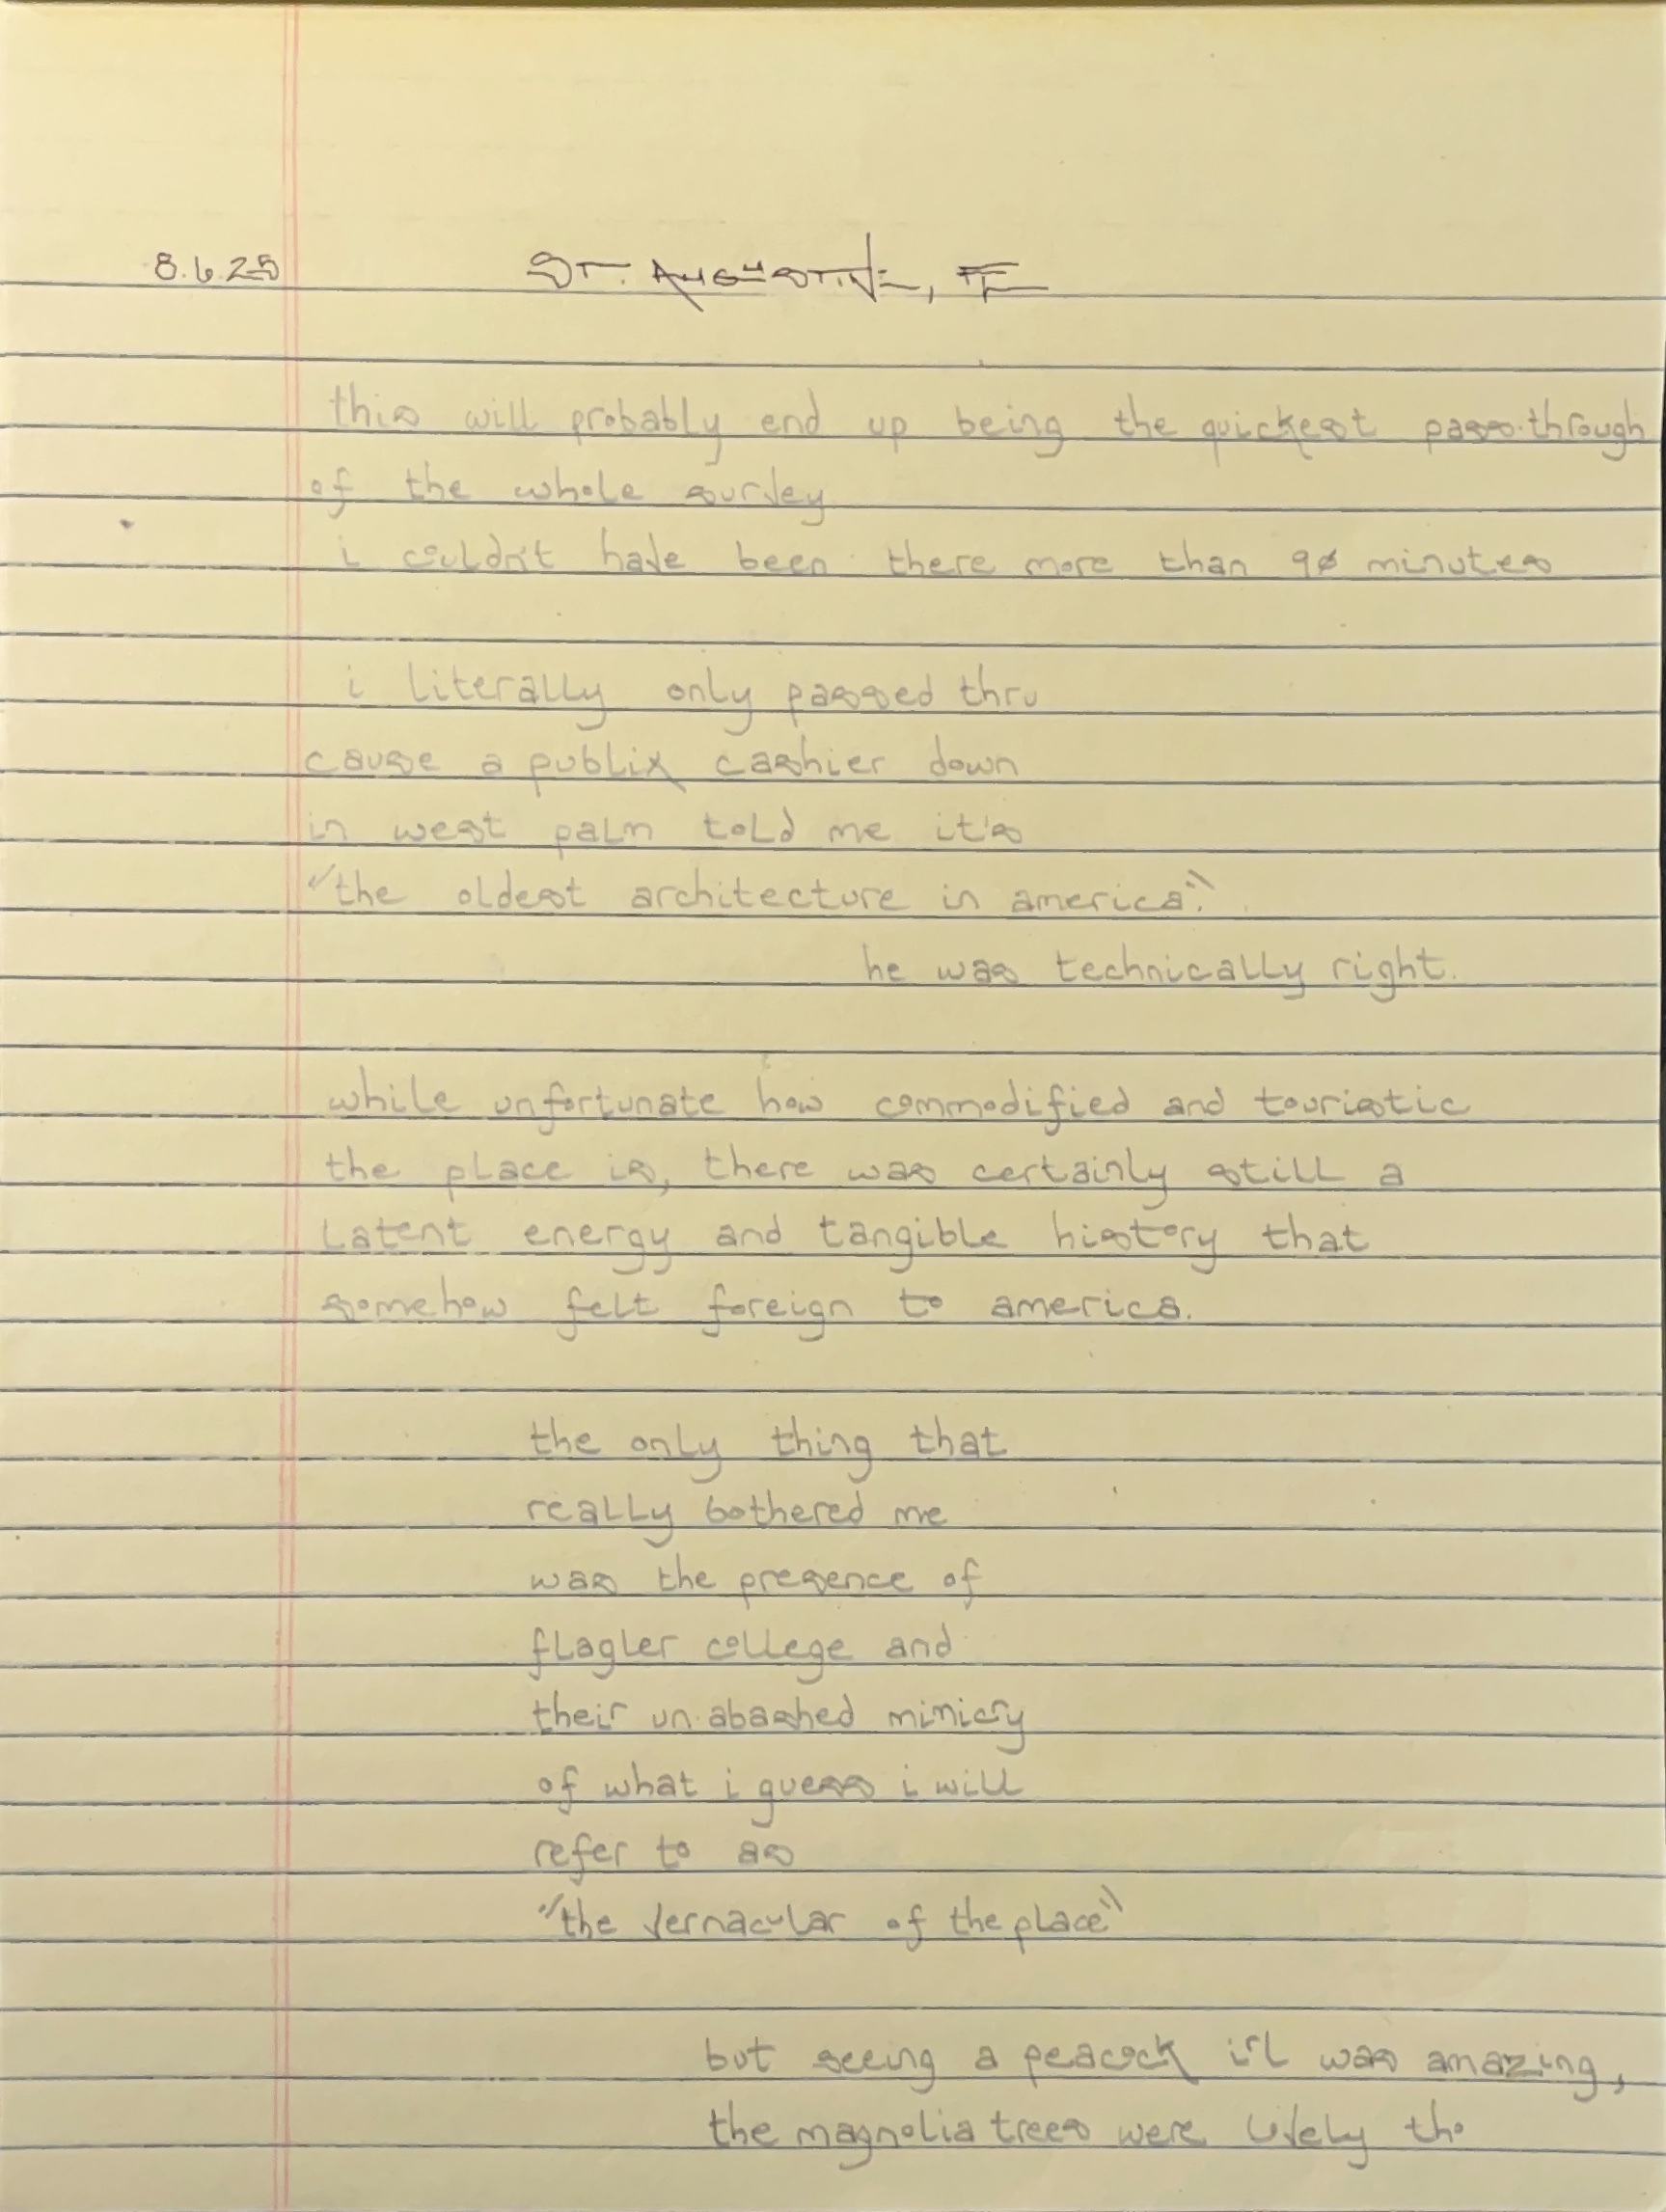 8.6.25 ST. AUGUSTINE, FL
this will probably end up being the quickest pass-through
of the whole survey
i couldn't have been there more than 90 minutes
i literally only passed thru
cause a publix cashier down
in west palm told me it's
"the oldest architecture in america."
he was technically right.
while unfortunate how commodified and touristic
the place is, there was certainly still a
latent energy and tangible history that
somehow felt foreign to america.
the only thing that
really bothered me
was the presence of
flagler college and
their un-abashed mimicry
of what i guess i will
refer to as
"the vernacular of the place"
but seeing a peacock irl was amazing,
the magnolia trees were lovely tho